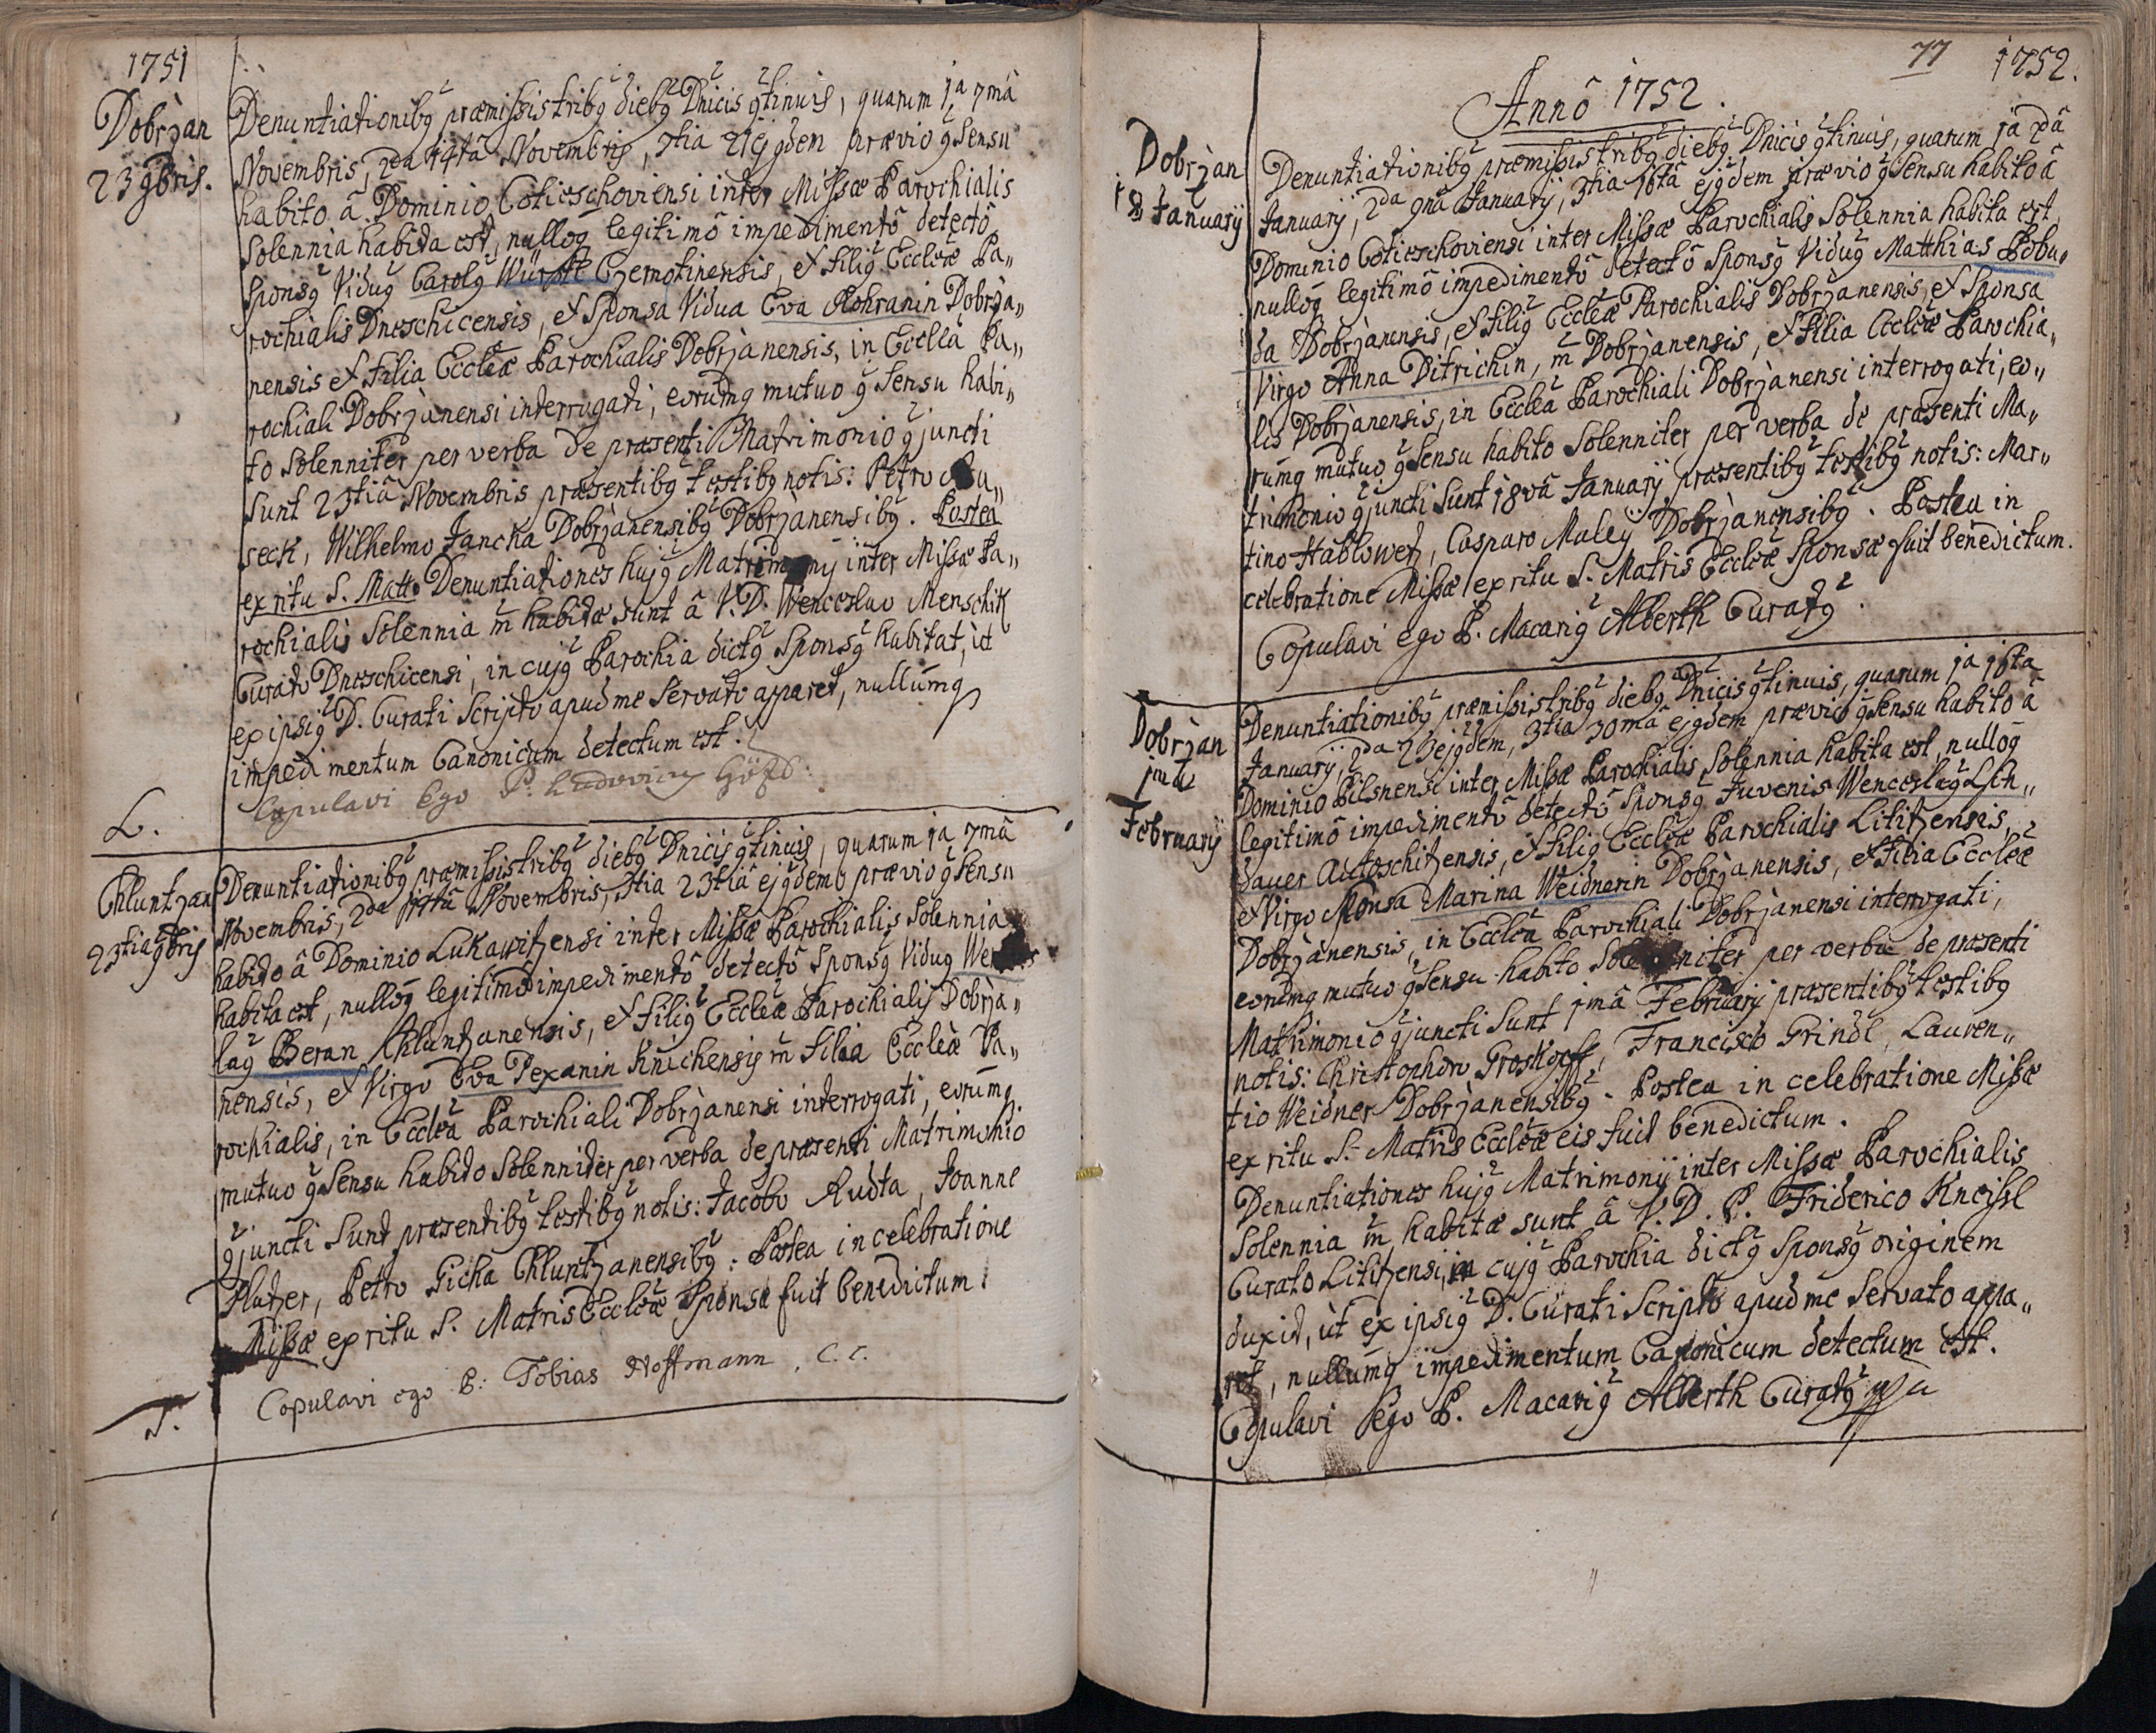 1751
Dobrzan
23 9bris.
Denuntiationibg praemissis tribg diebg Dnicis gtinuis, quarum 1a 7mâ
Novembris, 2da 14tâ Novembris, 3tia 21 ejgdem praevio gsensu
habito â Dominio Cotieschoviensi inter Missae Parochialis
Solennia habita est, nullog legitimô impedimentô detectô
Sponsg Vidug Carolg Würstl Czernotinensis, et filig Eccleae Pa„
rochialis Dneschicensis, et Sponsa Vidua Eva Rohranin Dobrza„
nensis et filia Eccleae Parochialis Dobrzanensis, in Ecclea Pa„
rochiali Dobrzanensi interrogati, eorumg mutuo gsensu habi„
to Solenniter per verba de praesenti Matrimonio gjuncti
Sunt 23tiâ Novembris praesentibg testibg notis: Petro
seck, Wilhelmo Jancka Dobrzanensibg Dobrzanensibg. Postea
ex ritu S. Matt. Denuntiationes hujg Matrimonÿ inter Missae Pa„
rochialis Solennia m habitae sunt â V. D. Wenceslao Menschik
Curato Dneschicensi, in cujg Parochia dictg Sponsg habitat, ùt
ex ipsig D. Curati Scripto apud me Servato apparet, nullumg
impedimentum Canonicum detectum est.
Copulavi Ego P. Ludovicg
L.
Chluntzan
23tia 9bris
Denuntiationibg praemissis tribg diebg Dnicis gtinuis, quarum 1a 7mâ
Novembris, 2da 14tâ Novembris, 3tia 23tiâ ejgdem praevio gsensu
habito â Dominio Lukawitzensi inter Missae Parochialis Solennia
habita est, nullog legitimô impedimentô detectô Sponsg Vidug
lag Beran Chluntzanensis, et filig Eccleae Parochialis Dobrza„
nensis, et Virgo Eva Pexanin Knichensis m filia Eccleae Pa„
rochialis, in Ecclea Parochiali Dobrzanensi interrogati, eorumg
mutuo gsensu habito Solenniter per verba de praesenti Matrimonio
gjuncti Sunt praesentibg testibg notis: Jacobo Rudta, Joanne
Platzer, Petro Picha Chluntzanensibg: Postea in celebratione
Missae ex ritu S. Matris Eccleae Sponsae fuit benedictum.
Copulavi ego P: Tobias Hoffmann, C. C.
77 1752.
Annô 1752.
Dobrzan
18 Januarÿ
Denuntiationibg praemissis tribg diebg Dnicis gtinuis, quarum 1a 2dâ
Januarÿ, 2da 9nâ Januarÿ, 3tia 16tâ ejgdem praevio gsensu habito â
Dominio Cotieschoviensi inter Missae Parochialis Solennia habita est,
nullog legitimô impedimentô detectô Sponsg Vidug Matthias Pobu„
da Dobrzanensis, et filig Eccleae Parochialis Dobrzanensis, et Sponsa
Virgo Anna Ditrichin, m Dobrzanensis, et filia Eccleae Parochia„
lis Dobrzanensis, in Ecclea Parochiali Dobrzanensi interrogati, eo„
rumg mutuo gsensu habito Solenniter per verba de praesenti Ma„
trimonio gjuncti Sunt 18vâ Januarÿ praesentibg testibg notis: Mar„
tino Hablowetz, Casparo Maleÿ Dobrzanensibg. Postea in
celebratione Missae ex ritu S. Matris Eccleae Sponsae fuit benedictum.
Copulavi ego P. Macarig Alberth Curatg.
Dobrzan
1ma
Februarÿ
Denuntiationibg praemissis tribg diebg Dnicis gtinuis, quarum 1a 16ta
Januarÿ, 2da 23 ejgdem, 3tia 30mâ ejgdem praevio gsensu habito â
Dominio Pilsnensi inter Missae Parochialis Solennia habita est, nullog
legitimô impedimentô detectô Sponsg Juvenis Wenceslag Lsch„
dauer Autoschitzensis, et filig Eccleae Parochialis Lititzensis,
et Virgo Sponsa Marina Weidnerin Dobrzanensis, et filia Eccleae
Dobrzanensis, in Ecclea Parochiali Dobrzanensi interrogati,
eorumg mutuo gsensu habito Solenniter per verba de praesenti
Matrimonio gjuncti Sunt 1mâ Februarÿ praesentibg testibg
notis: Christophoro Groskopff, Francisco Grindl, Lauren„
tio Weidner Dobrzanensibg. Postea in celebratione Missae
ex ritu S. Matris Eccleae eis fuit benedictum.
Denuntiationes hujg Matrimonÿ inter Missae Parochialis
Solennia m habitae sunt â V. D. P. Friderico Kneissl
Curato Lititzensi, in cujg Parochia dictg Sponsg originem
duxit, ùt ex ipsig D. Curati Scripto apud me Servato appa„
ret, nullumg impedimentum Canonicum detectum est.
Copulavi Ego P. Macarig Alberth Curatg